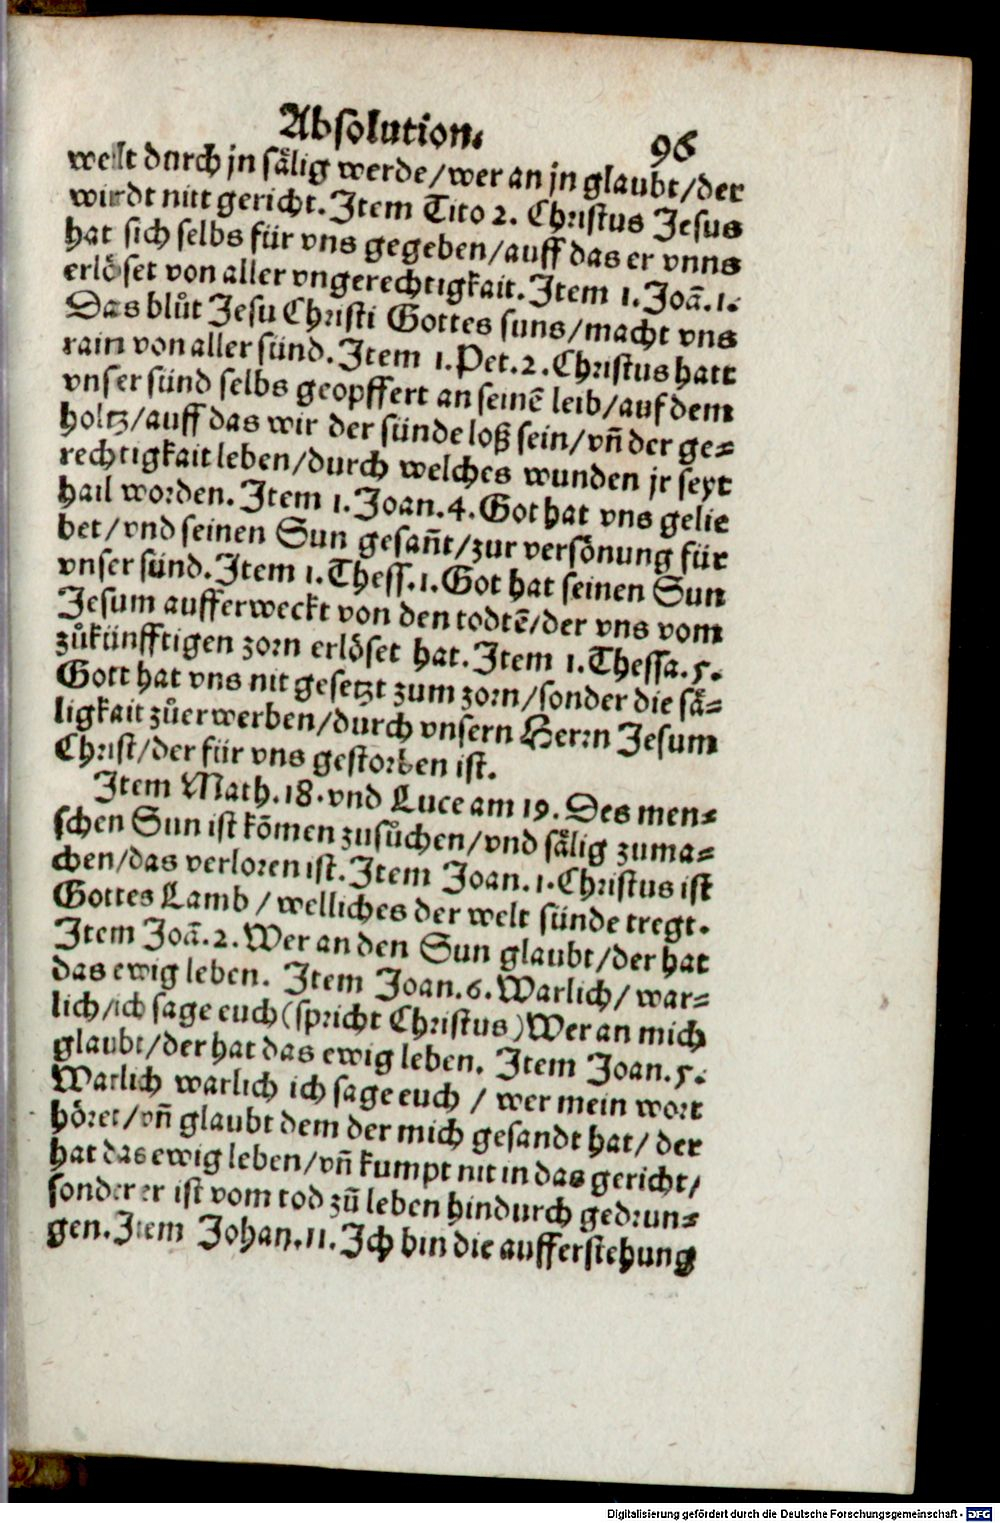 Absolution. 96
wellt durch jn sålig werde/wer an jn glaubt/der
wirdt nitt gericht. Item Tito 2. Christus Jesus
hat sich selbs für vns gegeben/auff das er vnns
erlöset von aller vngerechtigkait. Item 1. Joã. 1.
Das blůt Jesu Christi Gottes suns/macht vns
rain von aller sünd. Item 1. Pet. 2. Christus hatt
vnser sünd selbs geopffert an seinẽ leib/auf dem
holtz/auff das wir der sünde loß sein/vñ der ge⸗
rechtigkait leben/durch welches wunden jr seyt
hail worden. Item 1. Joan. 4. Got hat vns gelie
bet/vnd seinen Sun gesañt/zur versönung für
vnser sünd. Item 1. Thess. 1. Got hat seinen Sun
Jesum aufferweckt von den todtẽ/der vns vom
zůkünfftigen zorn erlöset hat. Item 1. Thessa. 5.
Gott hat vns nit gesetzt zum zorn/sonder die så⸗
ligkait zůerwerben/durch vnsern Herrn Jesum
Christ/der für vns gestorben ist.
Item Math. 18. vnd Luce am 19. Des men⸗
schen Sun ist kõmen zusůchen/vnd sålig zuma⸗
chen/das verloren ist. Item Joan. 1. Christus ist
Gottes Lamb/welliches der welt sünde tregt.
Item Joã. 2. Wer an den Sun glaubt/der hat
das ewig leben. Item Joan. 6. Warlich/war⸗
lich/ich sage euch (spricht Christus) Wer an mich
glaubt/der hat das ewig leben. Item Joan. 5.
Warlich warlich ich sage euch/wer mein wort
höret/vñ glaubt dem der mich gesandt hat/der
hat das ewig leben/vñ kumpt nit in das gericht/
sonder er ist vom tod zů leben hindurch gedrun⸗
gen. Item Johan. 11. Ich bin die aufferstehung
Digitalisierung gefördert durch die Deutsche Forschungsgemeinschaft - DFG